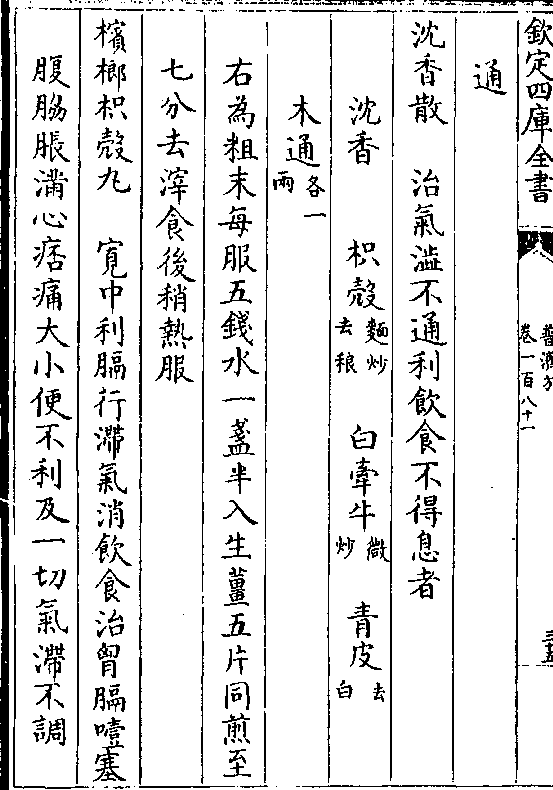 欽定四庫全書
卷一百八十一
通
沈香散　治氣澁不通利飲食不得息者
沈香　枳殼麵炒去穰　白牽牛微炒　青皮去白
木通各一兩
右為粗末每服五錢水一盞半入生薑五片同煎至
七分去滓食後稍熱服
檳榔枳殼丸　寛中利膈行滯氣消飲食治胷膈噎塞
腹脇脹滿心痞痛大小便不利及一切氣滯不調